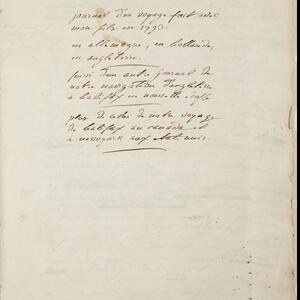 journal d'un voyage fait avec
mon fils en 1793.
en allemagne, en hollande,
en angleterre.
suivi d'un autre journal de
notre navigation d'angleterre
à halifax en nouvelle
plus de celui de notre voyage
de halifax au canada et
à newyork aux états unis.